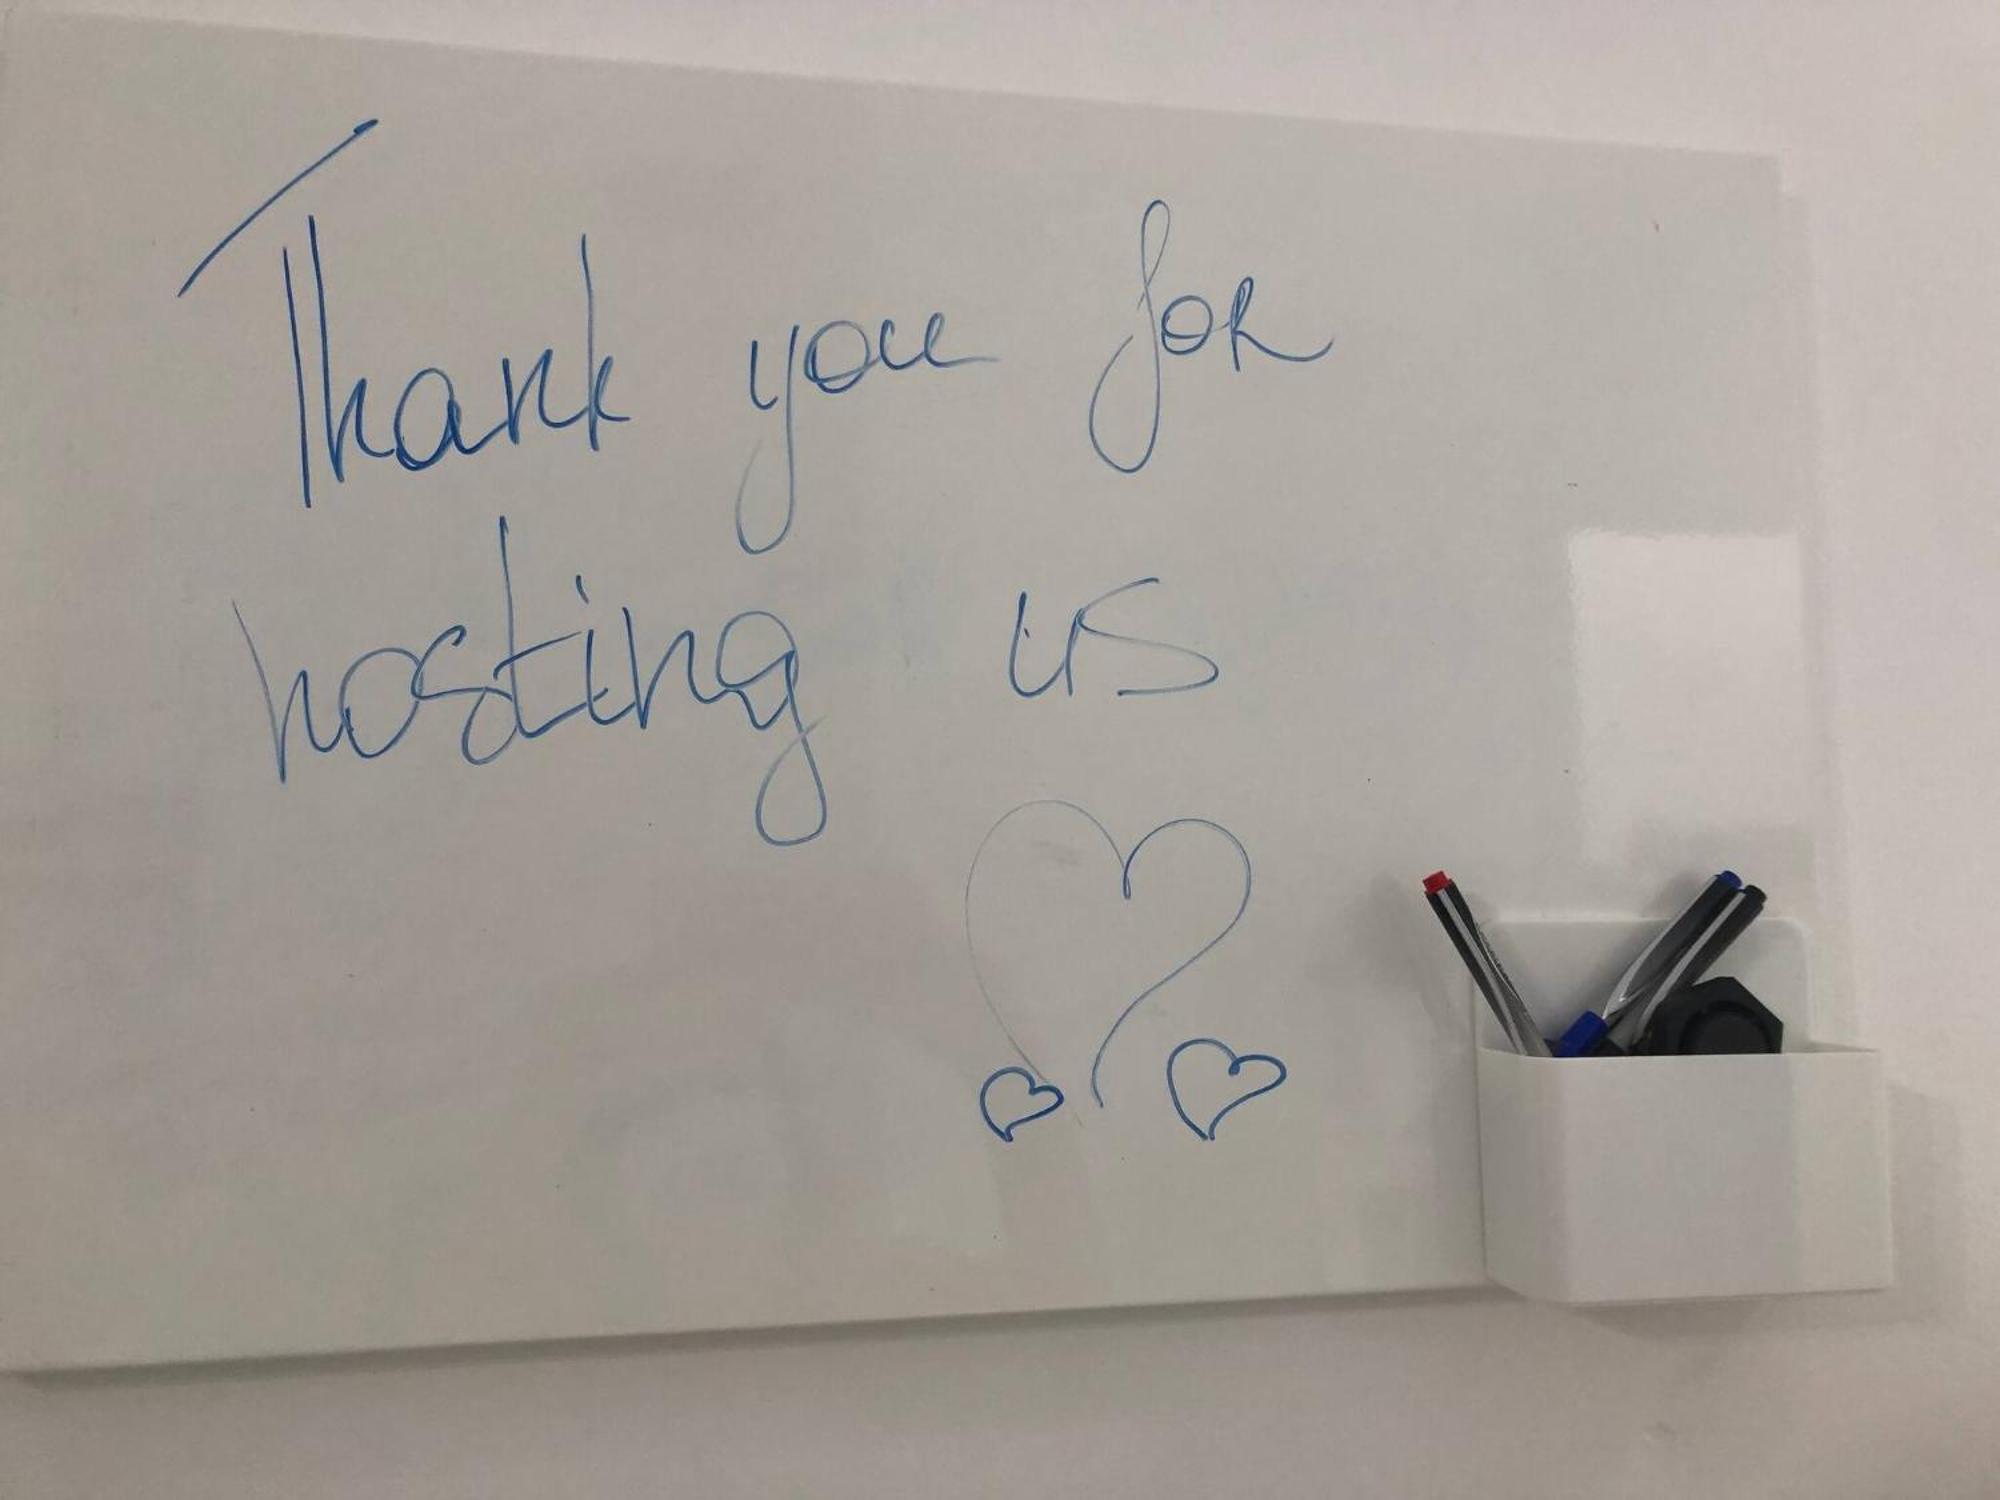 Thank you for
hosting us